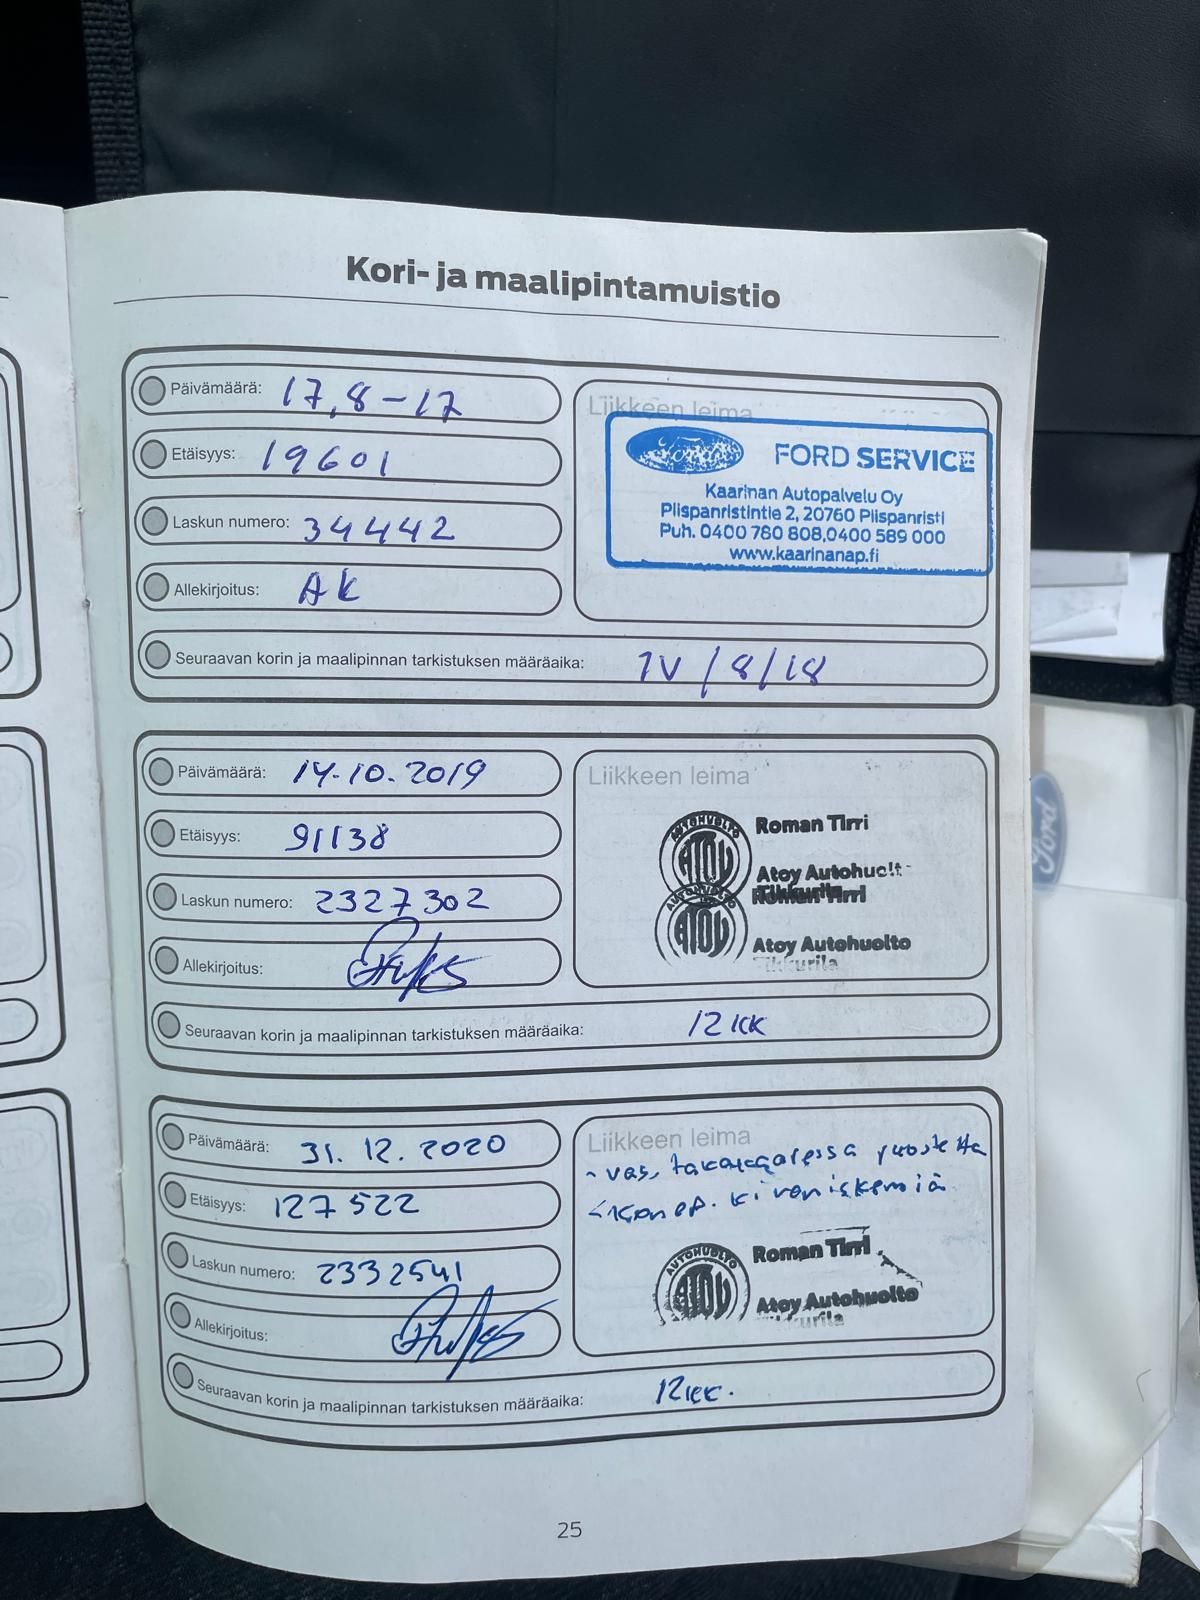 Kori- ja maalipintamuistio
Päivämäärä: 17,8-17
Etäisyys: 19601
Laskun numero: 34442
Allekirjoitus: AK
Liikkeen leima
Ford
FORD SERVICE
Kaarinan Autopalvelu Oy
Piispanristintie 2, 20760 Piispanristi
Puh. 0400 780 808,0400 589 000
www.kaarinanap.fi
Seuraavan korin ja maalipinnan tarkistuksen määräaika: 1V/8/18
Päivämäärä: 14.10.2019
Etäisyys: 91138
Laskun numero: 2327302
Allekirjoitus:
Liikkeen leima
AUTOHUOLTO
ATOY
Roman Tirri
Atoy Autohuolt
Tikkurila
Roman Tirri
AUTOHUOLTO
ATOY
Atoy Autohuolto
Tikkurila
Seuraavan korin ja maalipinnan tarkistuksen määräaika: 12 KK
Päivämäärä: 31.12.2020
Etäisyys: 127522
Laskun numero: 2332541
Allekirjoitus:
Liikkeen leima
- vas, takakaaressa ruostetta
- konep. kiveniskemiä
AUTOHUOLTO
ATOY
Roman Tirri
Atoy Autohuolto
Tikkurila
Seuraavan korin ja maalipinnan tarkistuksen määräaika: 12KK.
25
Ford